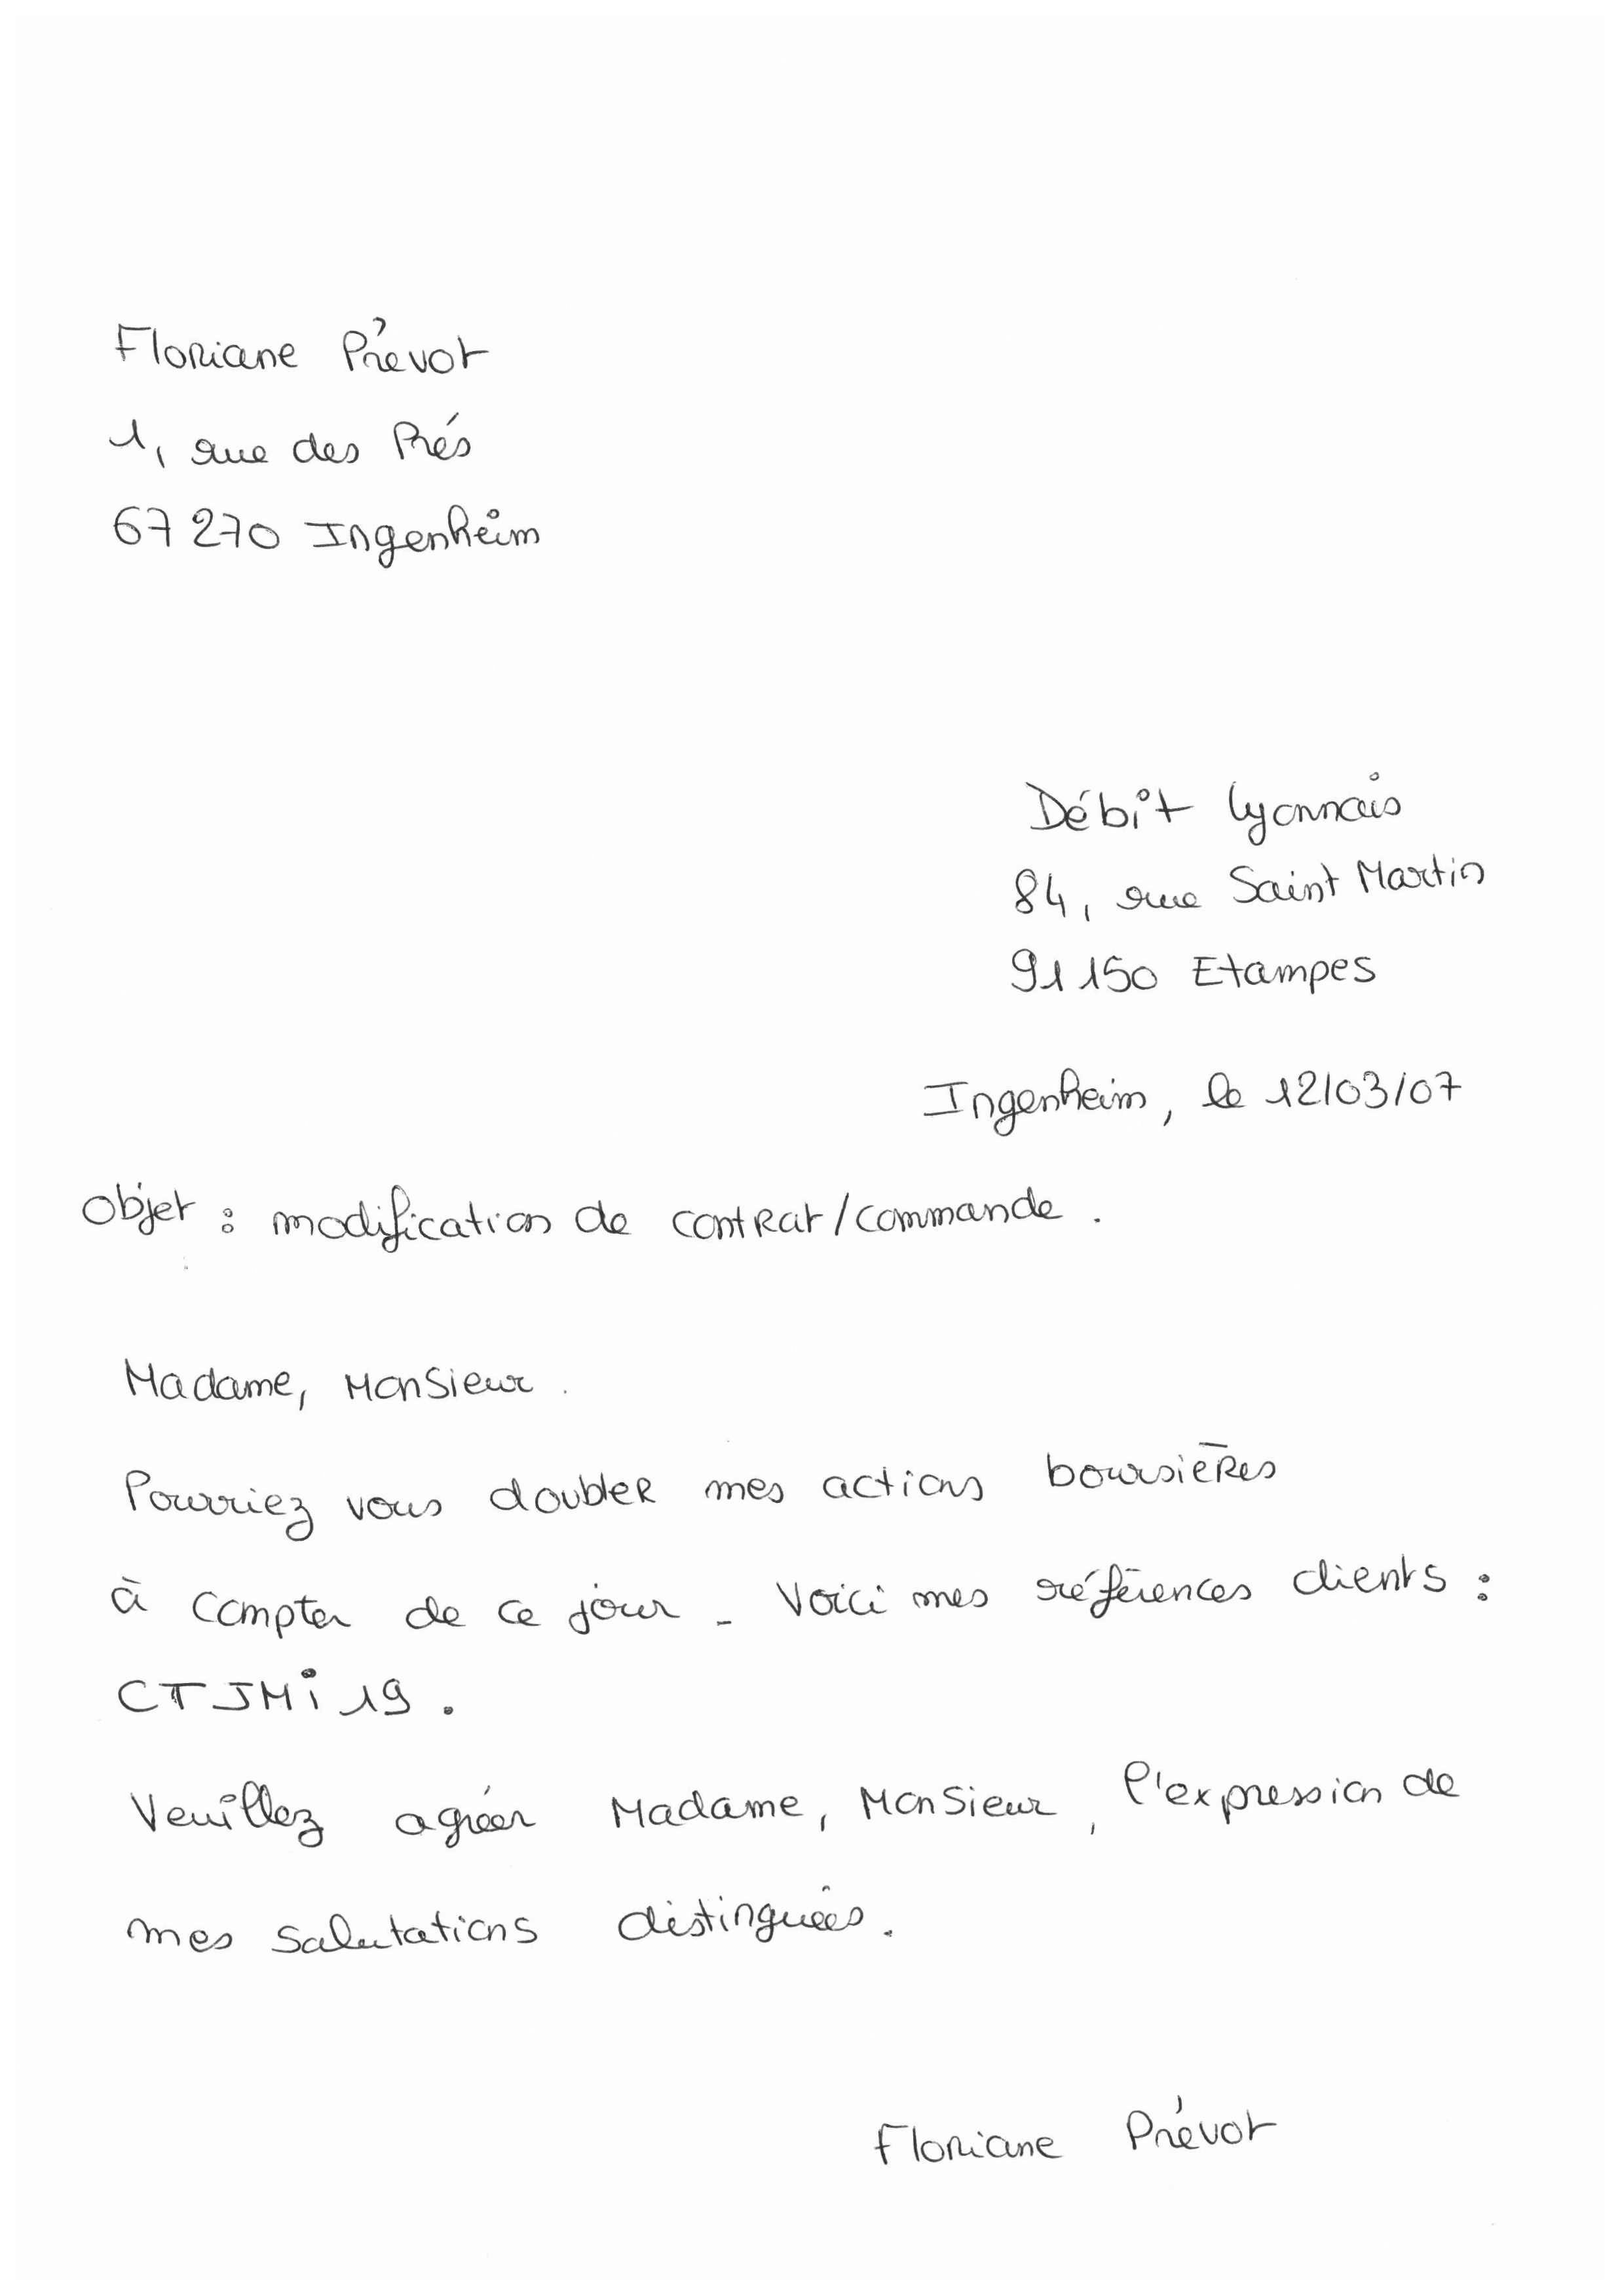 Floriane Prévot
1, rue des Prés
67270 Ingenheim
Débit lyonnais
84, rue Saint Martin
91150 Etampes
Ingenheim, le 12/03/07
Objet : modification de contrat/commande.
Madame, Monsieur.
Pourriez vous doubler mes actions boursières
à compter de ce jour - Voici mes références clients :
CTJMi19.
Veuillez agréer Madame, Monsieur, l'expression de
mes salutations distinguées.
Floriane Prévot